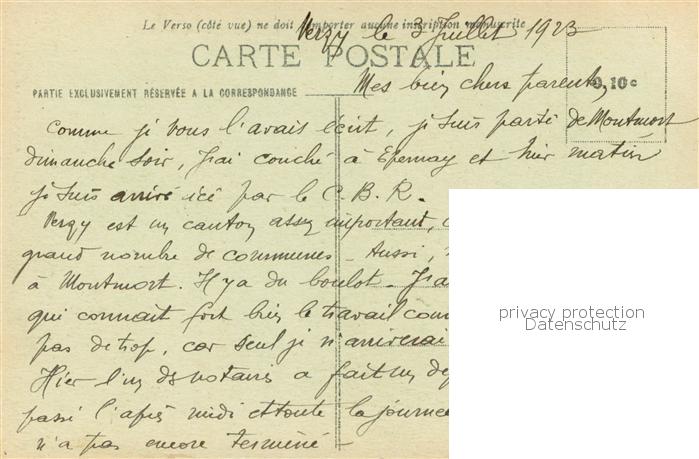 Le Verso (côté vue) ne doit comporter aucune inscription manuscrite
Verzy le 3 Juillet 1923
CARTE POSTALE
Mes bien chers parents,
0,10 c
PARTIE EXCLUSIVEMENT RÉSERVÉE A LA CORRESPONDANCE
Comme je vous l'avais écrit, je suis parti de Montmort
dimanche soir, j'ai couché à Epernay et hier matin
je suis arrivé ici par le C.B.R.
Verzy est un canton assez important,
grand nombre de communes - Aussi,
à Montmort. Il y a du boulot - J'ai
qui connait fort bien le travail
pas de trop, car seul je n'arriverai
Hier l'un des notaires a fait un
passé l'après midi et toute la journée
n'a pas encore terminé -
privacy protection
Datenschutz